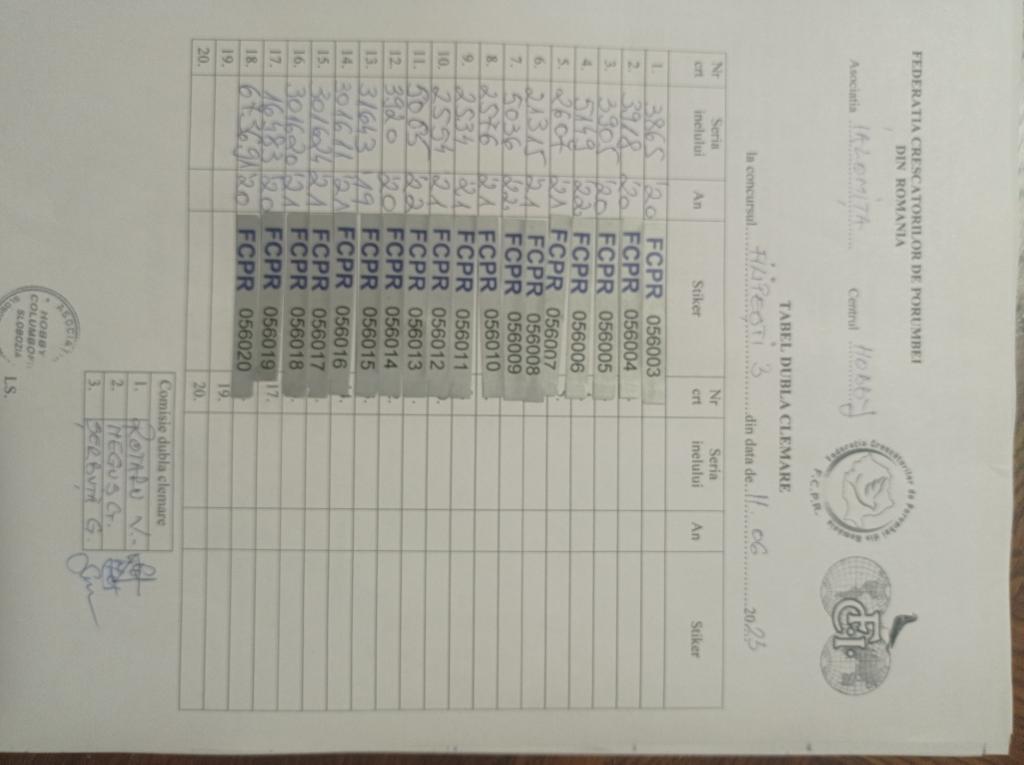 FEDERATIA CRESCATORILOR DE PORUMBEI
DIN ROMANIA
Asociatia IALOMITA Centrul HOBBY
Federatia Crescatorilor de Porumbei din Romania
F.C.P.R.
TABEL DUBLA CLEMARE
la concursul 3 din data de 11.06 2023
Nr crt Seria inelului An Stiker Nr crt Seria inelului An Stiker
1. 3865 '20 FCPR 056003
2. 3918 '20 FCPR 056004
3. 3905 '20 FCPR 056005
4. 5149 '22 FCPR 056006
5. 2607 '21 FCPR 056007
6. 21315 '21 FCPR 056008
7. 5036 '22 FCPR 056009
8. 2576 '21 FCPR 056010
9. 2534 '21 FCPR 056011
10. 2594 '21 FCPR 056012
11. 5005 '22 FCPR 056013
12. 3920 '20 FCPR 056014
13. 31643 '19 FCPR 056015
14. 301611 '21 FCPR 056016
15. 301624 '21 FCPR 056017
16. 301620 '21 FCPR 056018
17. 16483 '20 FCPR 056019 17.
18. '20 FCPR 056020
19. 19.
20. 20.
Comisie dubla clemare
1. ROTARU V.
2. NEGUS G.
3. G.
HOBBY
SLOBOZIA
LS.